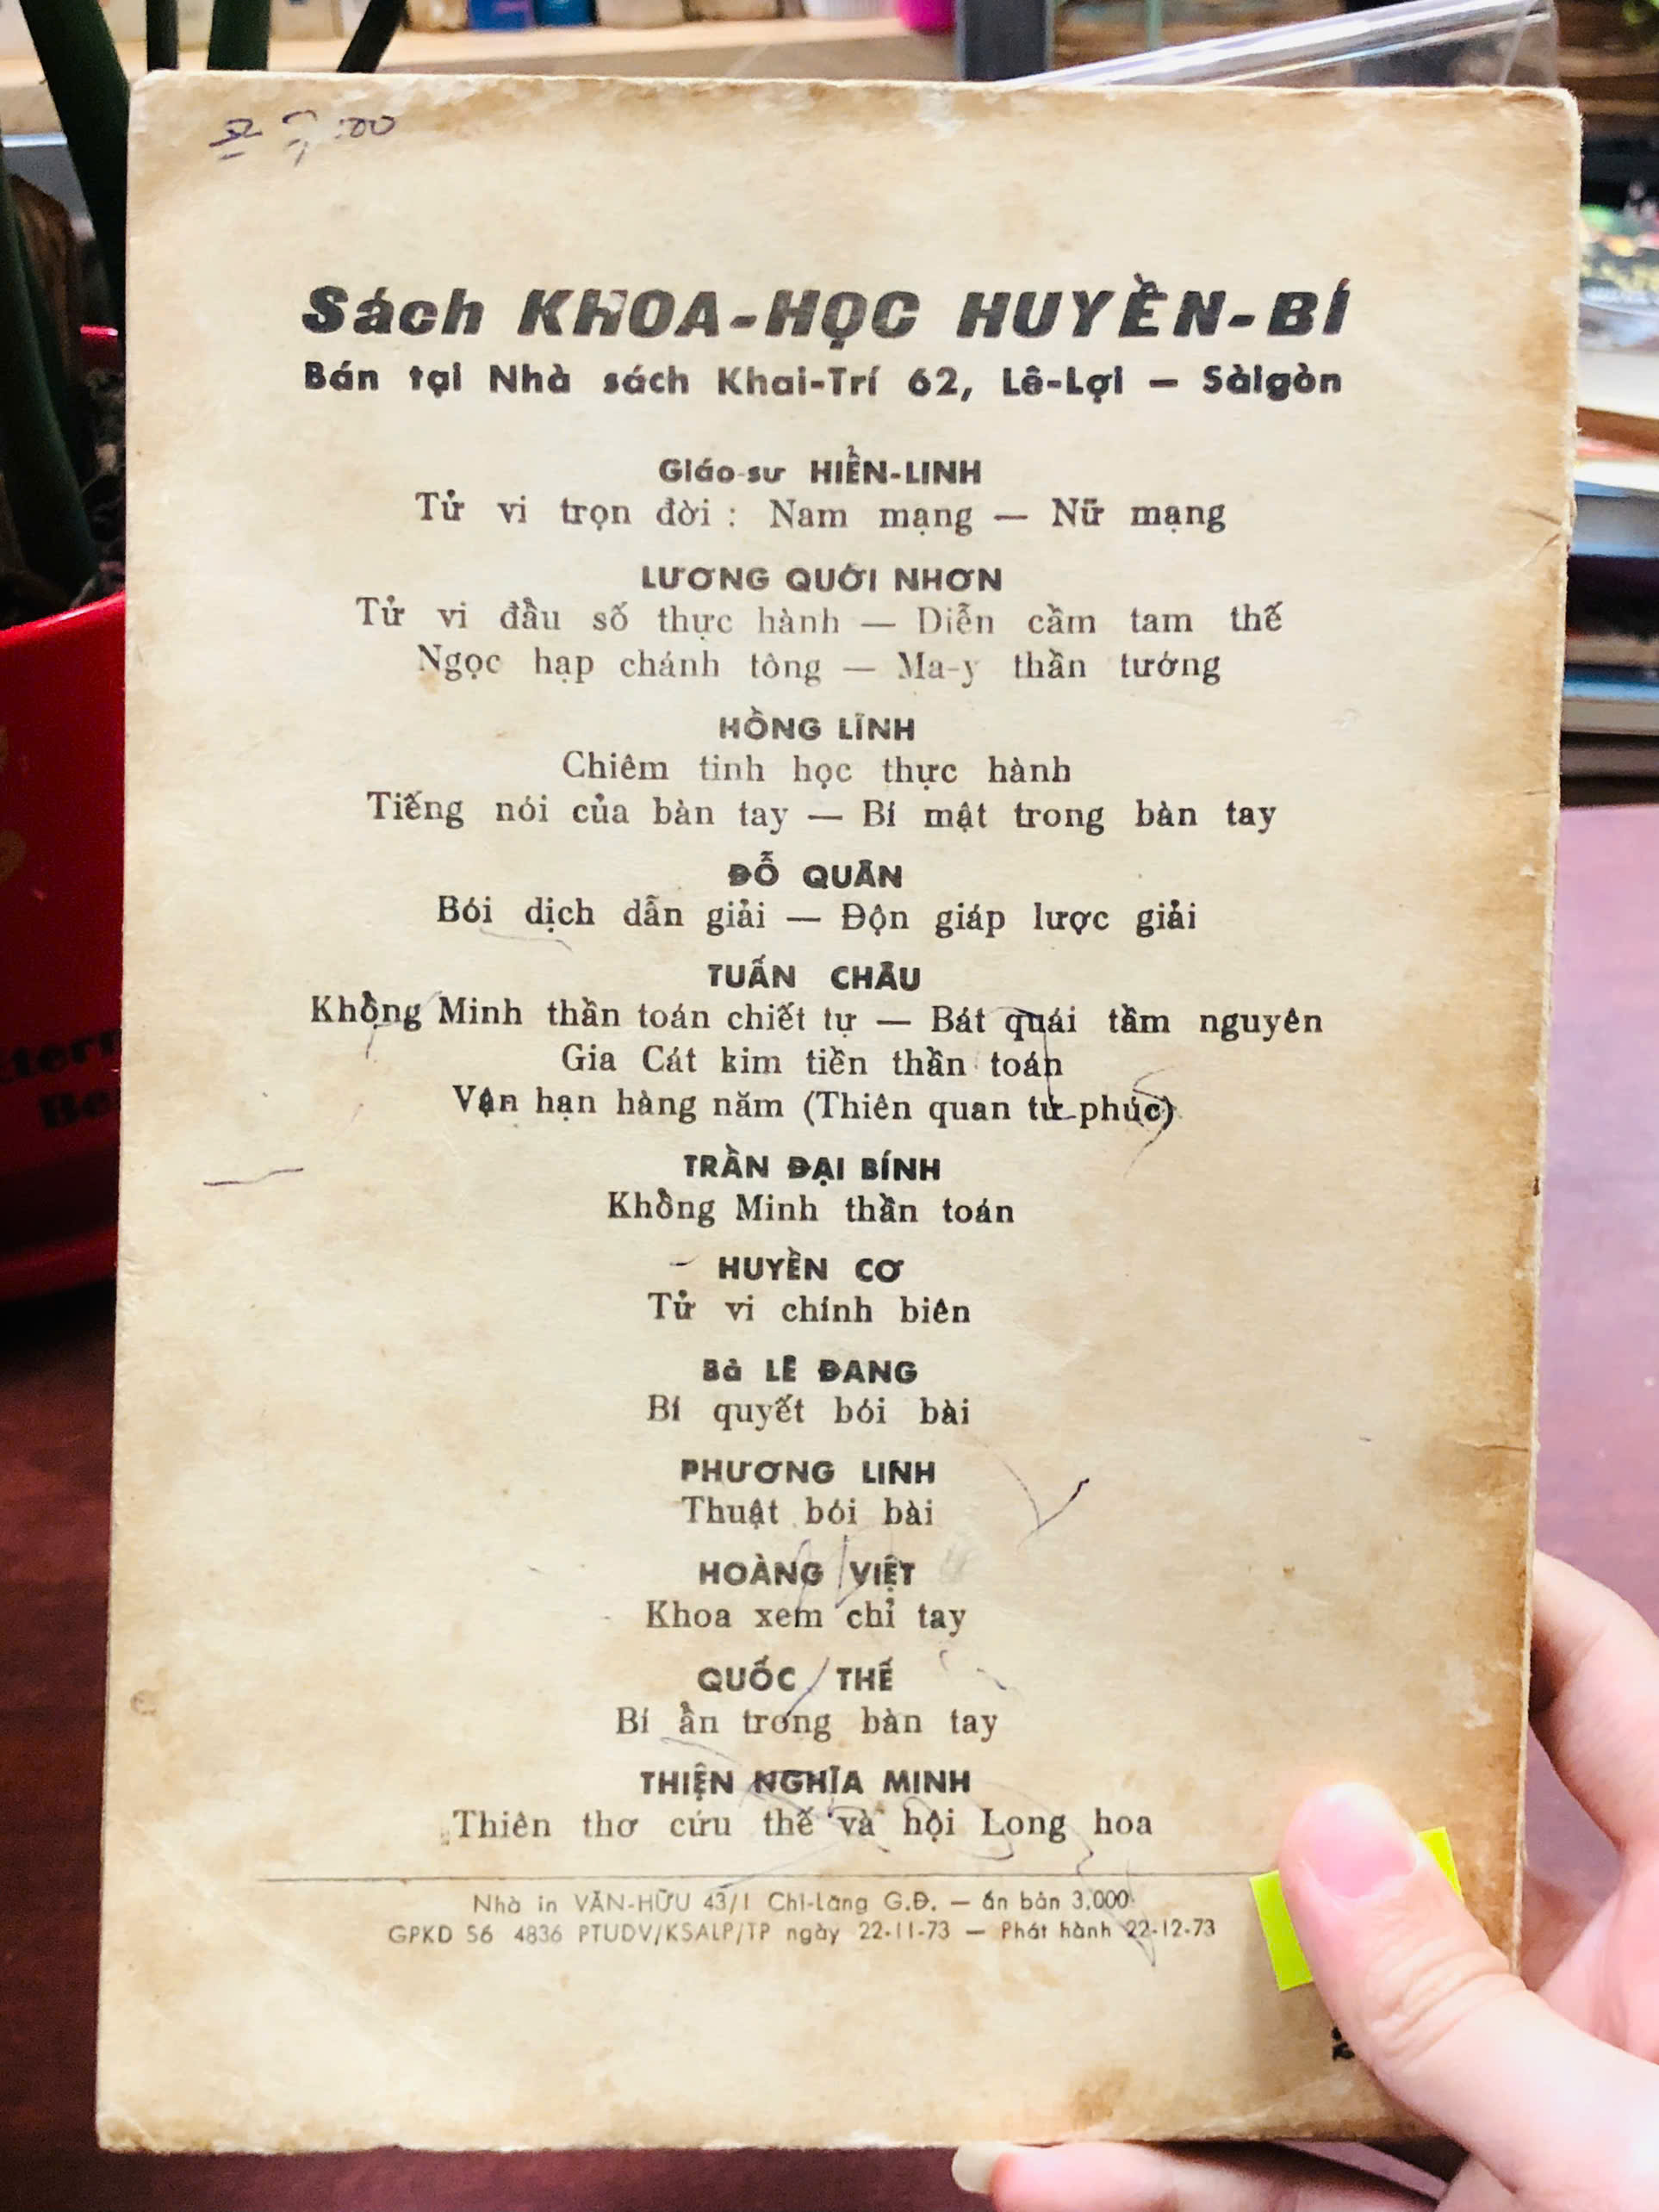 Sách KHOA-HỌC HUYỀN-BÍ
Bán tại Nhà sách Khai-Trí 62, Lê-Lợi — Sàigòn
Giáo-sư HIỂN-LINH
Tử vi trọn đời : Nam mạng — Nữ mạng
LƯƠNG QUỚI NHƠN
Tử vi đầu số thực hành — Diễn cầm tam thế
Ngọc hạp chánh tông — Ma-y thần tướng
HỒNG LĨNH
Chiêm tinh học thực hành
Tiếng nói của bàn tay — Bí mật trong bàn tay
ĐỖ QUÂN
Bói dịch dẫn giải — Độn giáp lược giải
TUẤN CHÂU
Khổng Minh thần toán chiết tự — Bát quái tầm nguyên
Gia Cát kim tiền thần toán
Vận hạn hàng năm (Thiên quan tứ phúc)
TRẦN ĐẠI BÍNH
Khổng Minh thần toán
HUYỀN CƠ
Tử vi chính biên
Bà LÊ ĐANG
Bí quyết bói bài
PHƯƠNG LINH
Thuật bói bài
HOÀNG VIỆT
Khoa xem chỉ tay
QUỐC THẾ
Bí ẩn trong bàn tay
THIỆN NGHĨA MINH
Thiên thơ cứu thế và hội Long hoa
Nhà in VĂN-HỮU 43/1 Chi-Lăng G.Đ. — ấn bản 3.000
GPKD Số 4836 PTUDV/KSALP/TP ngày 22-11-73 — Phát hành 22-12-73